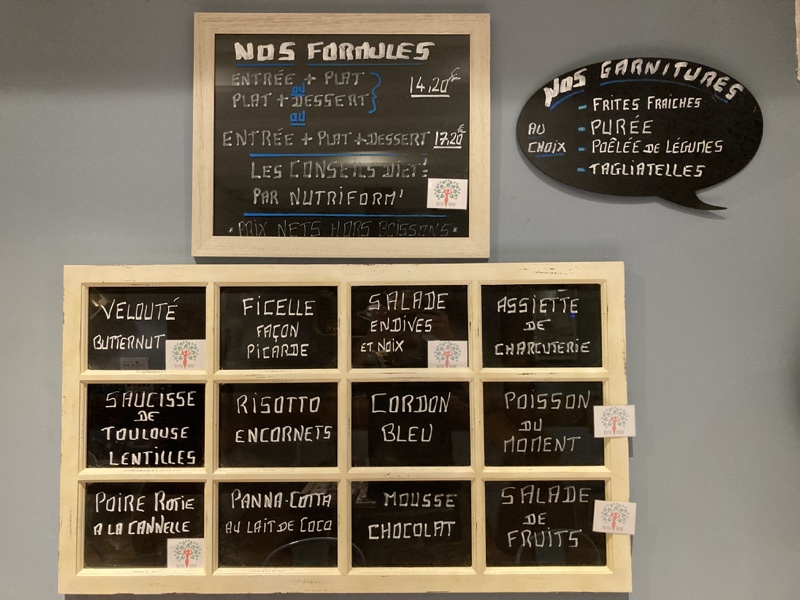 NOS FORMULES
ENTRÉE + PLAT 14,20€
ou
PLAT + DESSERT
ou
ENTRÉE + PLAT + DESSERT 17,20€
LES CONSEILS DIET'
PAR NUTRIFORM'
* PRIX NETS HORS BOISSONS *
NOS GARNITURES
AU CHOIX
- FRITES FRAICHES
- PURÉE
- POÊLÉE DE LÉGUMES
- TAGLIATELLES
VELOUTÉ
BUTTERNUT
FICELLE
FAÇON
PICARDE
SALADE
ENDIVES
ET NOIX
ASSIETTE
DE
CHARCUTERIE
SAUCISSE
DE
TOULOUSE
LENTILLES
RISOTTO
ENCORNETS
CORDON
BLEU
POISSON
DU
MOMENT
POIRE ROTIE
A LA CANNELLE
PANNA-COTTA
AU LAIT DE COCO
MOUSSE
CHOCOLAT
SALADE
DE
FRUITS